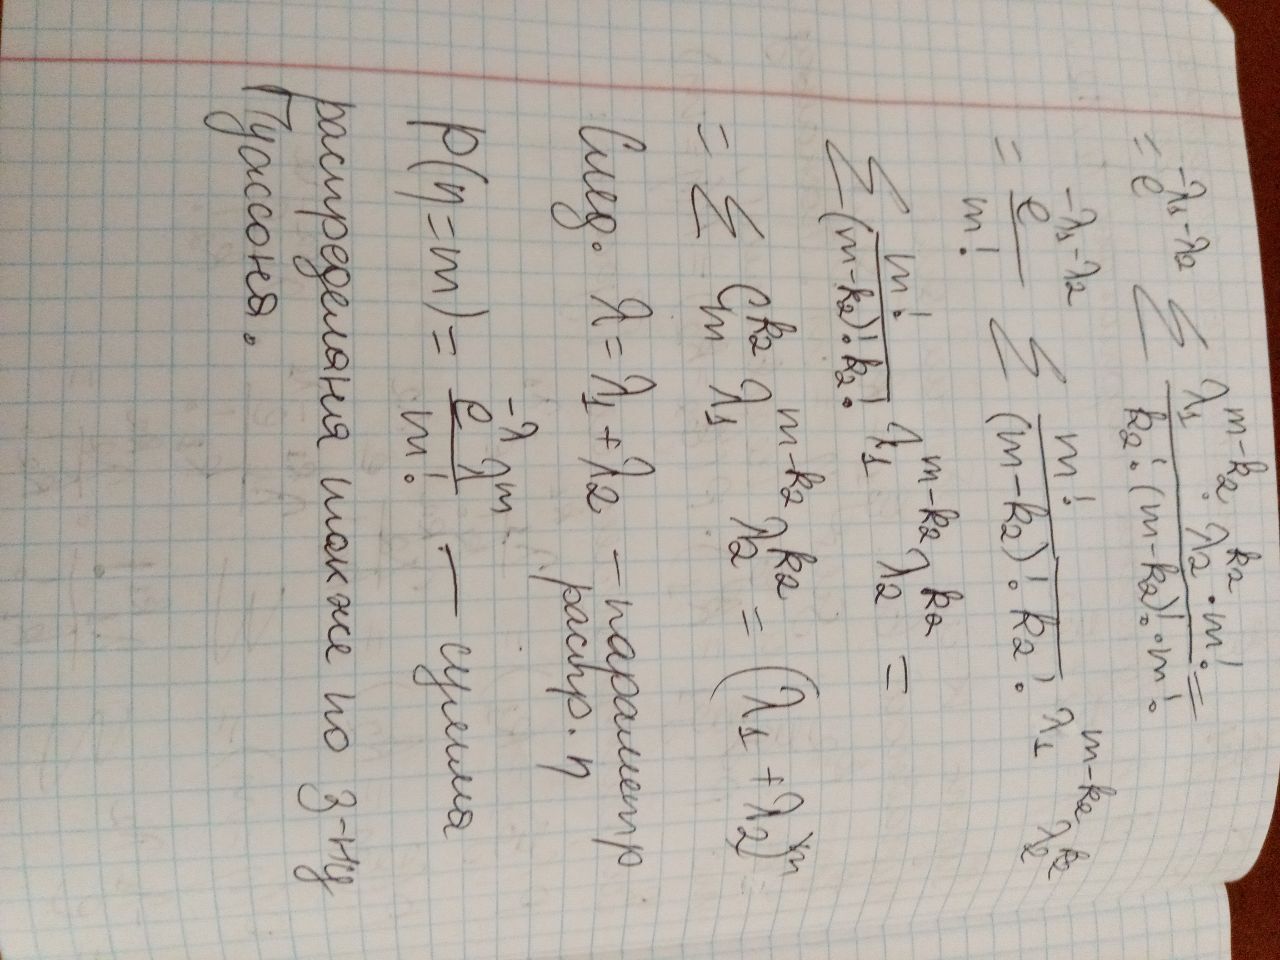 = e^{-λ₁-λ₂} ∑ \frac{λ₁^{m-k₂} · λ₂^{k₂} · m!}{k₂! · (m-k₂)! · m!} =
= \frac{e^{-λ₁-λ₂}}{m!} ∑ \frac{m!}{(m-k₂)! k₂!} λ₁^{m-k₂} λ₂^{k₂}
∑ \frac{m!}{(m-k₂)! k₂!} λ₁^{m-k₂} λ₂^{k₂} =
= ∑ C_m^{k₂} λ₁^{m-k₂} λ₂^{k₂} = (λ₁ + λ₂)^m
След. λ = λ₁ + λ₂ – параметр
распр. η
P(η=m) = \frac{e^{-λ} λ^m}{m!} — сумма
распределена также по з-ну
Пуассона.